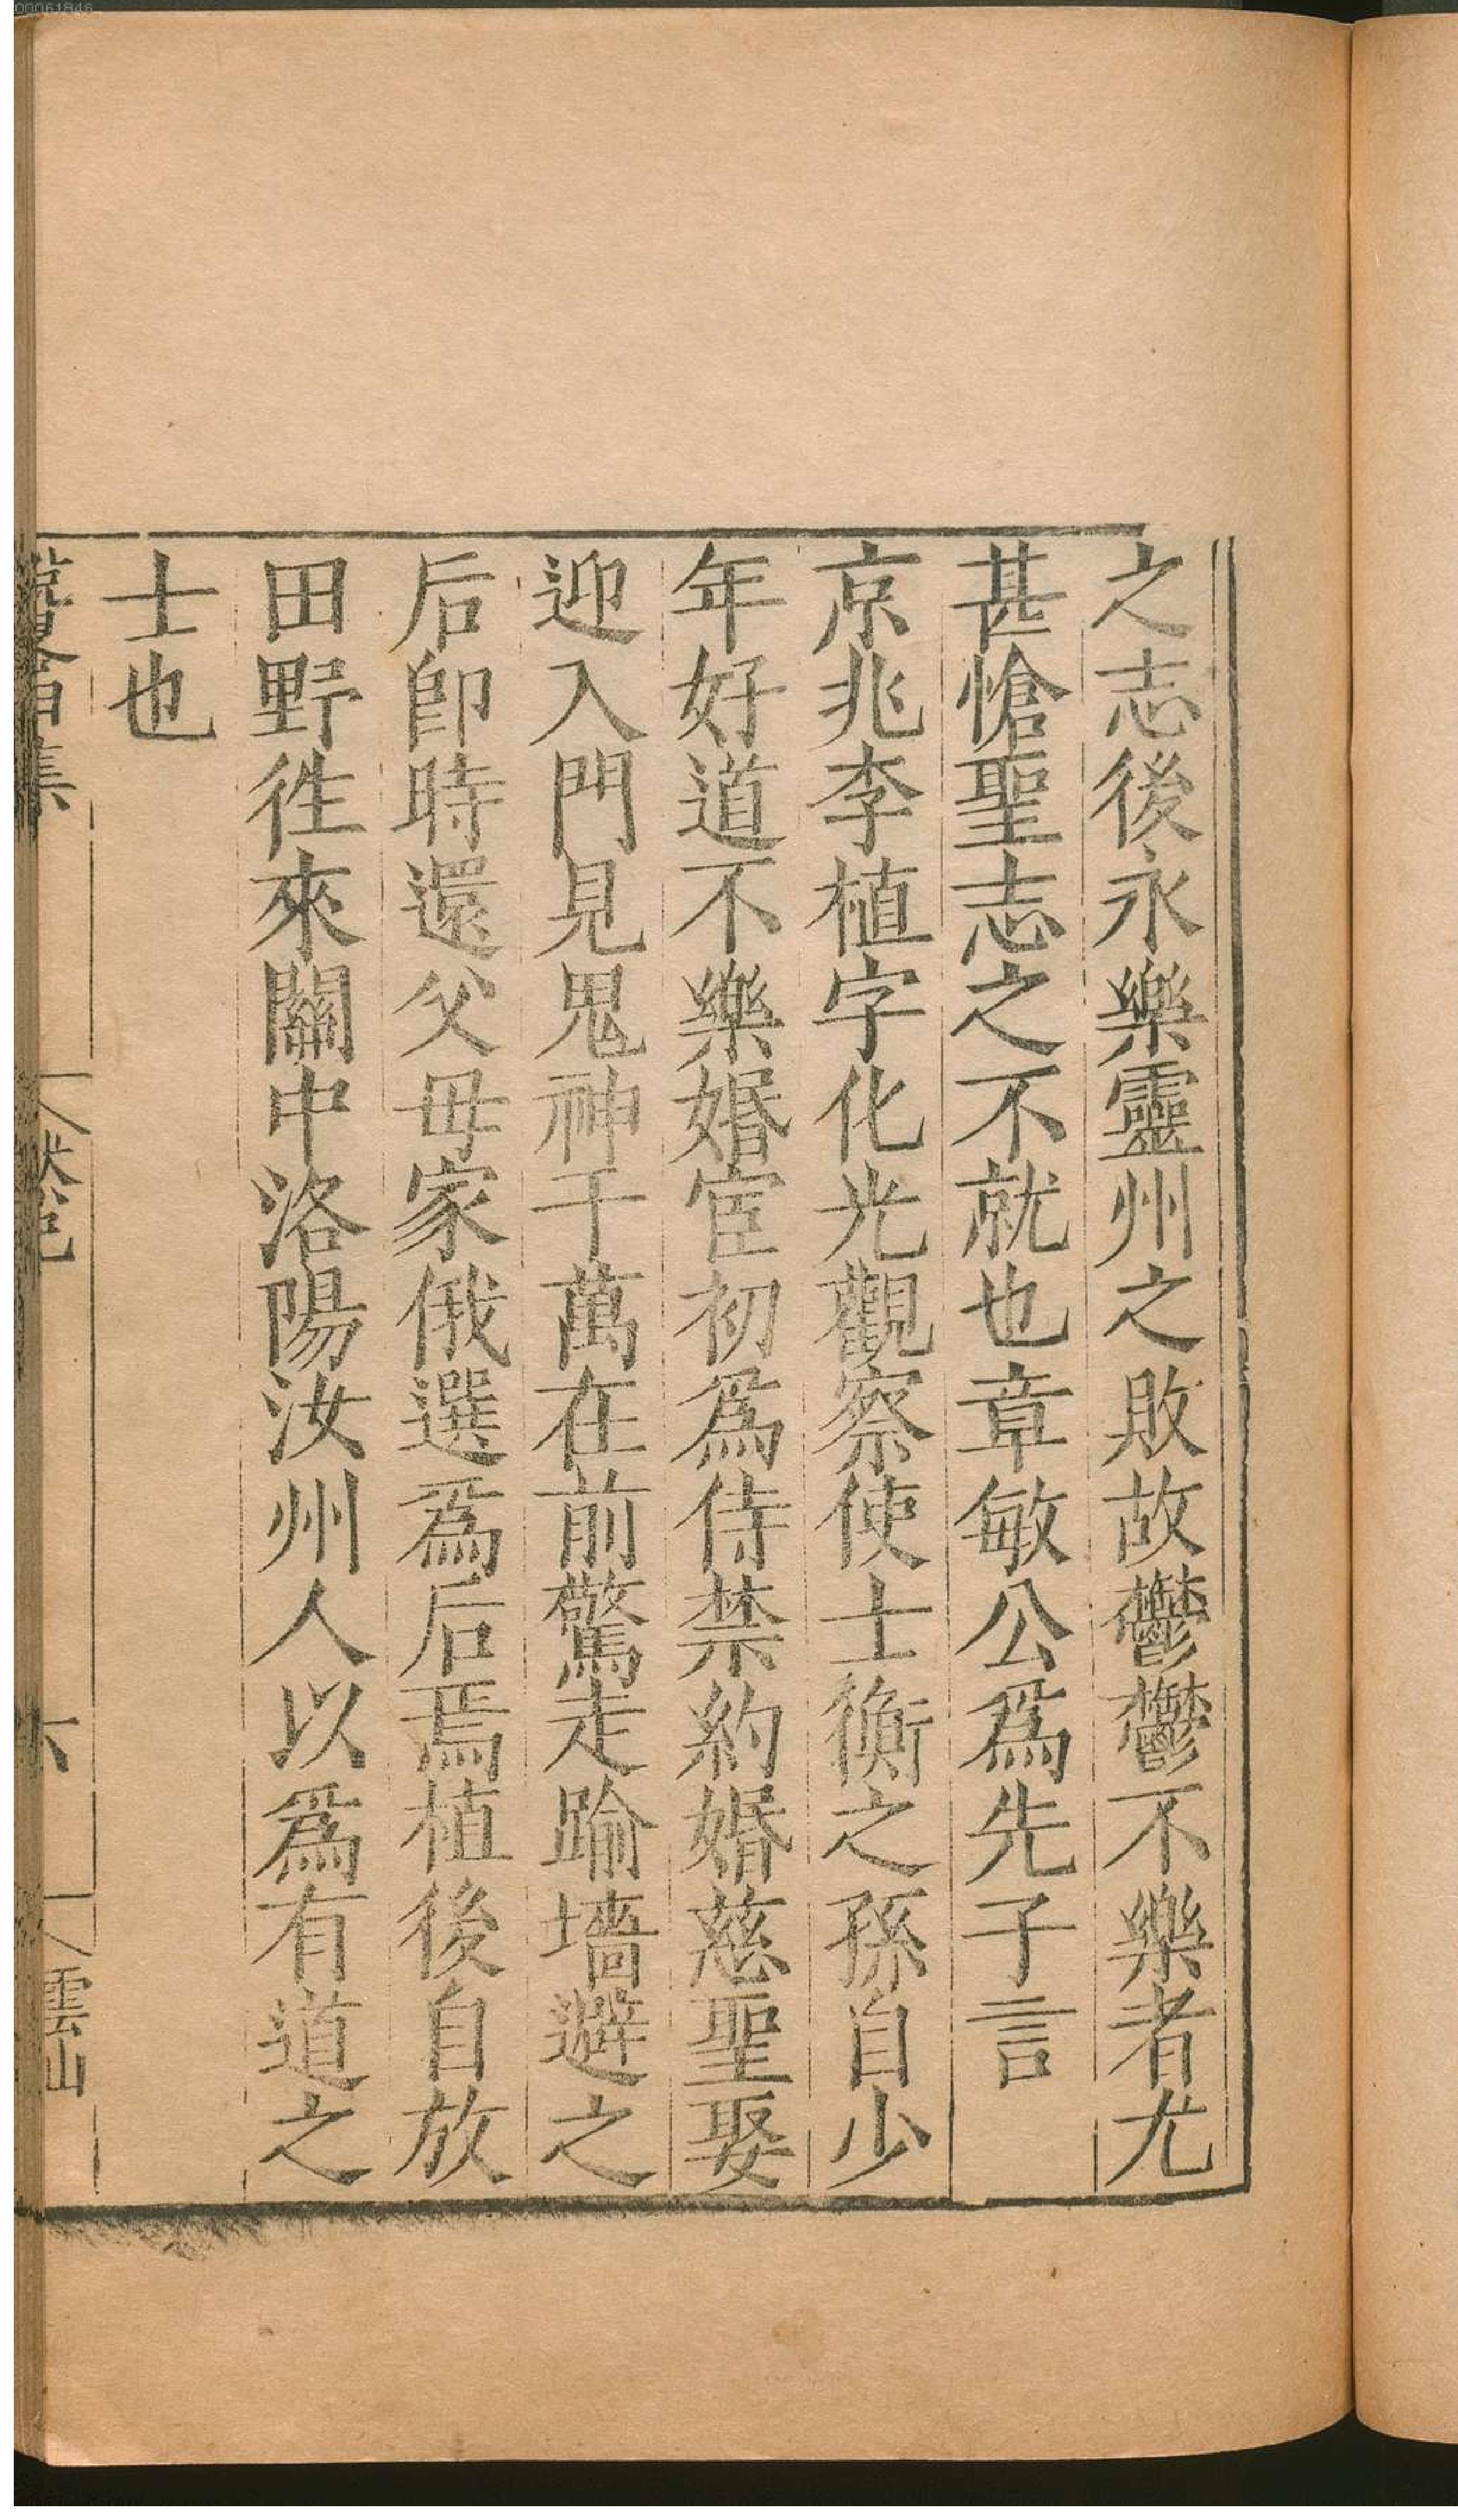 之志後永樂靈州之敗故鬱鬱不樂者尤
甚愴聖志之不就也章敏公爲先子言
京兆李植字化光觀察使士衡之孫自少
年好道不樂婚宦初爲侍禁約婚慈聖娶
迎入門見鬼神千萬在前驚走踰墻避之
后卽時還父母家俄選爲后焉植後自放
田野徃來關中洛陽汝州人以爲有道之
士也
六
雲山
00061846